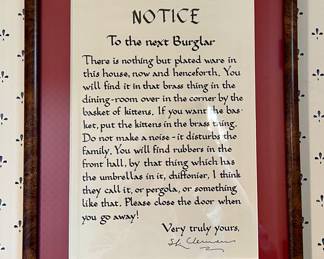 NOTICE
To the next Burglar
There is nothing but plated ware in
this house, now and henceforth. You
will find it in that brass thing in the
dining-room over in the corner by the
basket of kittens. If you want the bas-
ket, put the kittens in the brass thing.
Do not make a noise - it disturbs the
family. You will find rubbers in the
front hall, by that thing which has
the umbrellas in it, chiffonier, I think
they call it, or pergola, or something
like that. Please close the door when
you go away!
Very truly yours,
S. L. Clemens